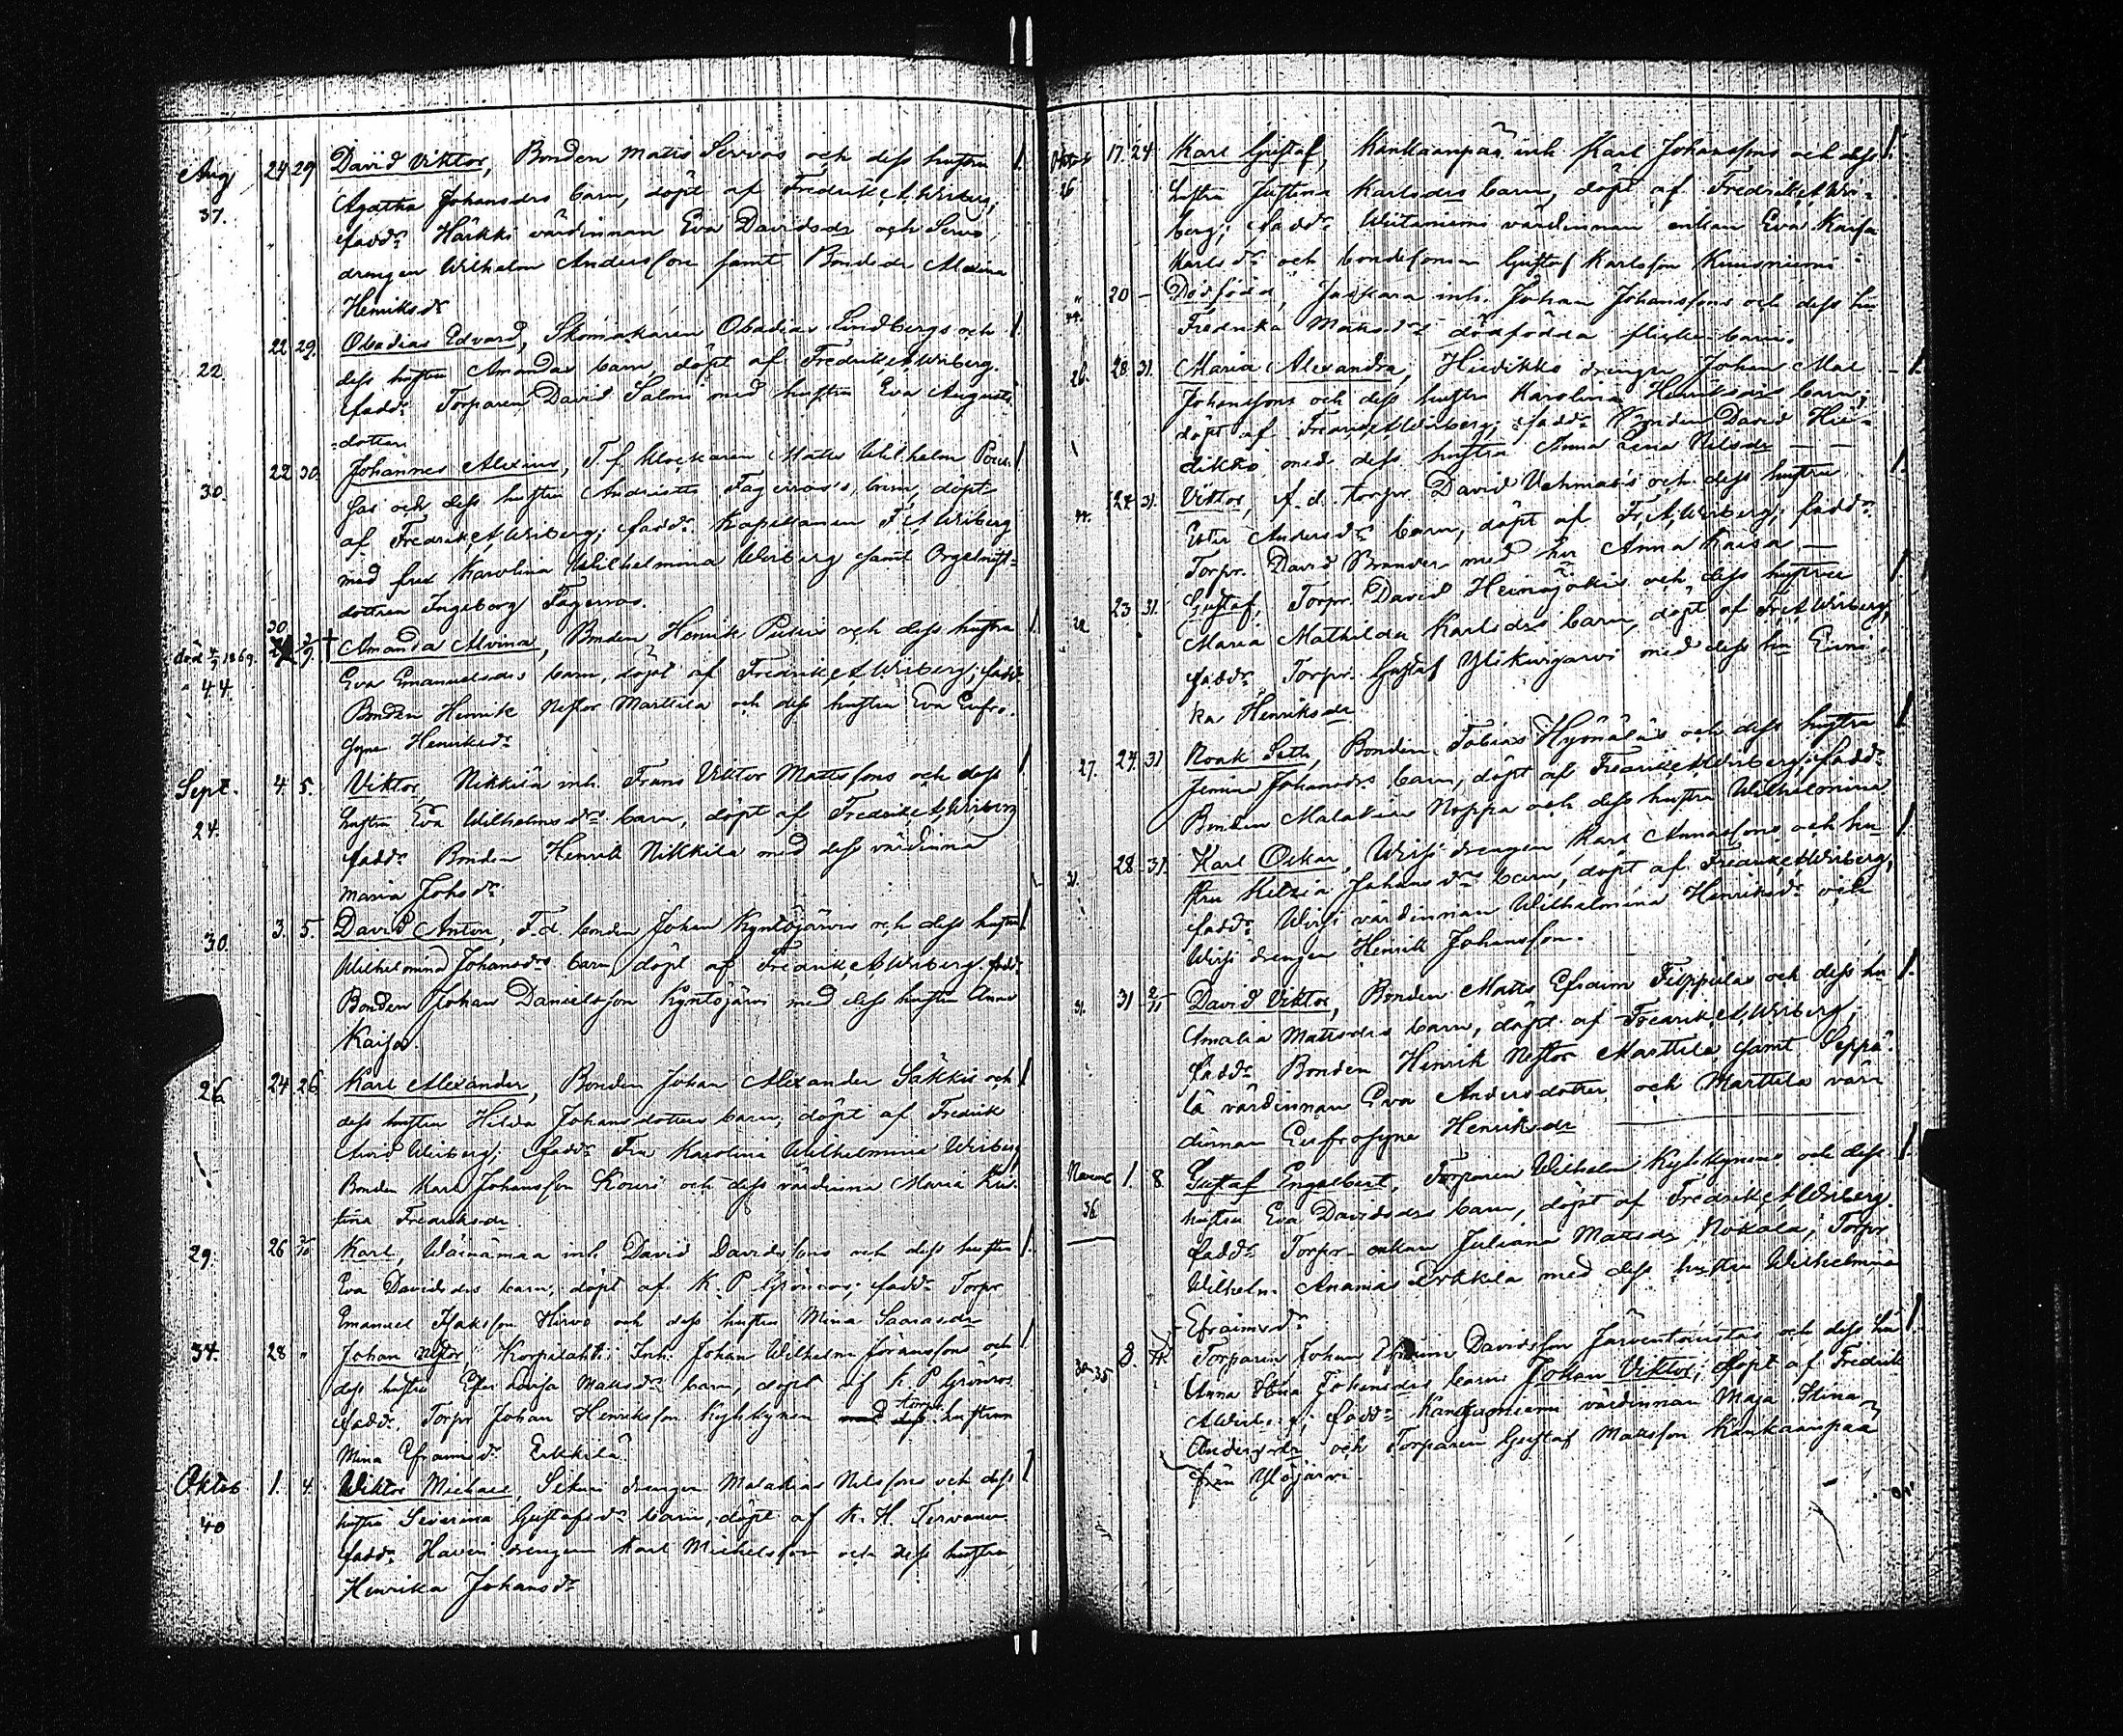 Aug 24 29 David Viktor, Bonden Matts Servos och dess hustru
37. Agatha Johansdrs barn, döpt af Fredrik A. Wirberg,
fadd: Harkki värdinnan Eva Davidsdr och Servo
drengen Wilhelm Andersson samt Bondedr Aldina
Henriksdr
22 29. Obadias Edvard, Skomakaren Obadias Lindbergs och
22. dess hustru Amandas barn, döpt af Fredrik A. Wirberg.
fadd: Torparen David Salmi med hustru Eva Augusts
dotter.
22 30. Johannes Alexius, T. f. klockaren Matts Wilhelm
30. och dess hustru Andrietta Fagerroos's barn, döpt
af Fredrik A. Wirberg; fadd: Kapellanen F. A. Wirberg
med fru Karolina Wilhelmina Wirberg samt Orgelnist-
dottren Ingeborg Fagerroos.
30
2/9. † Amanda Alvina, Bonden Henrik och dess hustru
död 1869.
44. Eva Emanuelsdrs barn, döpt af Fredrik A. Wirberg; fadd:
Bonden Henrik Nestor Marttila och dess hustru Eva Eufro-
syne Henriksdr
Sept. 4 5. Viktor, Nikkilä inh. Frans Viktor Mattssons och dess
24. hustru Eva Wilhelmsdrs barn, döpt af Fredrik A. Wirberg
fadd: Bonden Henrik Nikkilä med dess värdinna
Maria Johsdr
3. 5. David Anton, F.d. bonden Johan Kyntöjärvis och dess hustru
30. Wilhelmina Johansdrs barn, döpt af Fredrik A. Wirberg. fadd:
Bonden Johan Danielsson Kyntöjärvi med dess hustru Anna
Kaisa.
24 26. Karl Alexander, Bonden Johan Alexander Säkkis och
26 dess hustru Hilda Johansdotters barn, döpt af Fredrik
Arvid Wirberg; fadd: Fru Karolina Wilhelmina Wirberg
Bonden Karl Johansson Kouri och dess värdinna Maria Kris-
tina Fredriksdr
26 2/10 Karl, Wäinämaa inh. David Davidssons och dess hustru
29. Eva Davidsdrs barn, döpt af K. P. Grönroos; fadd: Torpr
Emanuel Isaksson Hirvo och dess hustru Mina Saarasdr
34. 28 " Johan Nestor, Korpelahti Inh. Johan Wilhelm Göranssons och
dess hustru Eva Kaisa Mattsdrs barn, döpt af K. P. Grönroos
fadd: Torpr Johan Henriksson Kyhkynen med torpr. hustrun
Mina Efraimsdr Erkkilä
Oktob 1. 4. Wiktor Michael, Sikuri drengen Malakias Nilssons och dess
40 hustru Severina Gustafsdrs barn, döpt af K. H. Tervanen
fadd: Haveri drengen Karl Michelsson och dess hustru
Henrika Johansdr
Oktob 17. 24 Karl Gustaf, Kankaanpää inh Karl Johanssons och dess
26 hustru Justina Karlsdrs barn, döpt af Fredrik A. Wir-
berg; fadd: Wiitaniemi värdinnan enkan Eva Kaisa
Karlsdr och bondesonen Gustaf Karlsson Kuusniemi
" 20 - Dödfödd, Jaskara inh. Johan Johanssons och dess hu
44. Fredrika Mattsdrs dödfödda flicke-barn.
26. 28 31. Maria Alexandra, Hiedikko drengen Johan Mat
Johanssons och dess hustru Karolina Henriksdrs barn,
döpt af Fredrik A. Wirberg; fadd: Bonden David Hie-
dikko med dess hustru Anna Lena Nilsdr
24 31. Viktor, f. d. torpr. David Vehmas's och dess hustru
44. Ester Andersdrs barn, döpt af Fr. A. Wirberg; fadd:
Torpr. David Brander med hu Anna Kaisa
23 31. Gustaf, Torpr. David Heinojokis och dess hustru
22 Maria Mathilda Karlsdrs barn, döpt af Fr. A. Wirberg,
fadd: Torpr. Gustaf Ylikuisjarvi med dess hu
Henriksdr
27. 27. 31 Noak Seth, Bonden Tobias Hyönöläs och dess hustru
Jemina Johansdrs barn, döpt af Fredrik A. Wirberg; fadd:
Bonden Malakias Noppa och dess hustru Wilhelmina
28 31. Karl Oskar, Wirsi drengen Karl Annassons och hu
31. stru Johansdrs barn, döpt af Fredrik A. Wirberg,
fadd: Wirsi värdinnan Wilhelmina Henriksdr och
Wirsi drengen Henrik Johansson.
31. 31 2/11 David Viktor, Bonden Matts Efraim Filppulas och dess hu
Amalia Mattsdrs barn, döpt af Fredrik A. Wirberg;
fadd: Bonden Henrik Nestor Marttila samt Seppä-
lä värdinnan Eva Andersdotter och Marttila vär-
dinnan Eufrosyne Henriksdr
Novemb 1. 8 Gustaf Engelbert, Torparen Wilhelm Kyhkynens och dess
36 hustru Eva Davidsdrs barn, döpt af Fredrik A. Wirberg.
fadd: Torpr-enkan Juliana Mattsdr Nokola, Torpr
Wilhelm Anania Erkkilä med dess hustru Wilhelmina
Efraimsdr
8. Torparen Johan Davidsson Järventaustas och dess hu
35 Anna Stina Johansdrs barn Johan Viktor, döpt af Fredrik
A. Wirberg; fadd: värdinnan Maja Stina
Andersdr och Torparen Gustaf Mattsson Kankaanpää
från Ylöjärvi.